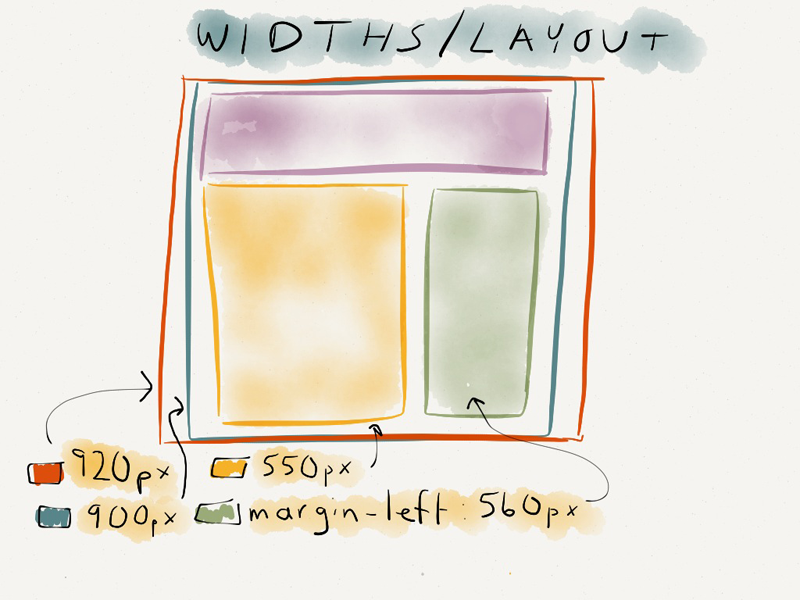 WIDTHS/LAYOUT
920px 550px
900px margin-left: 560px